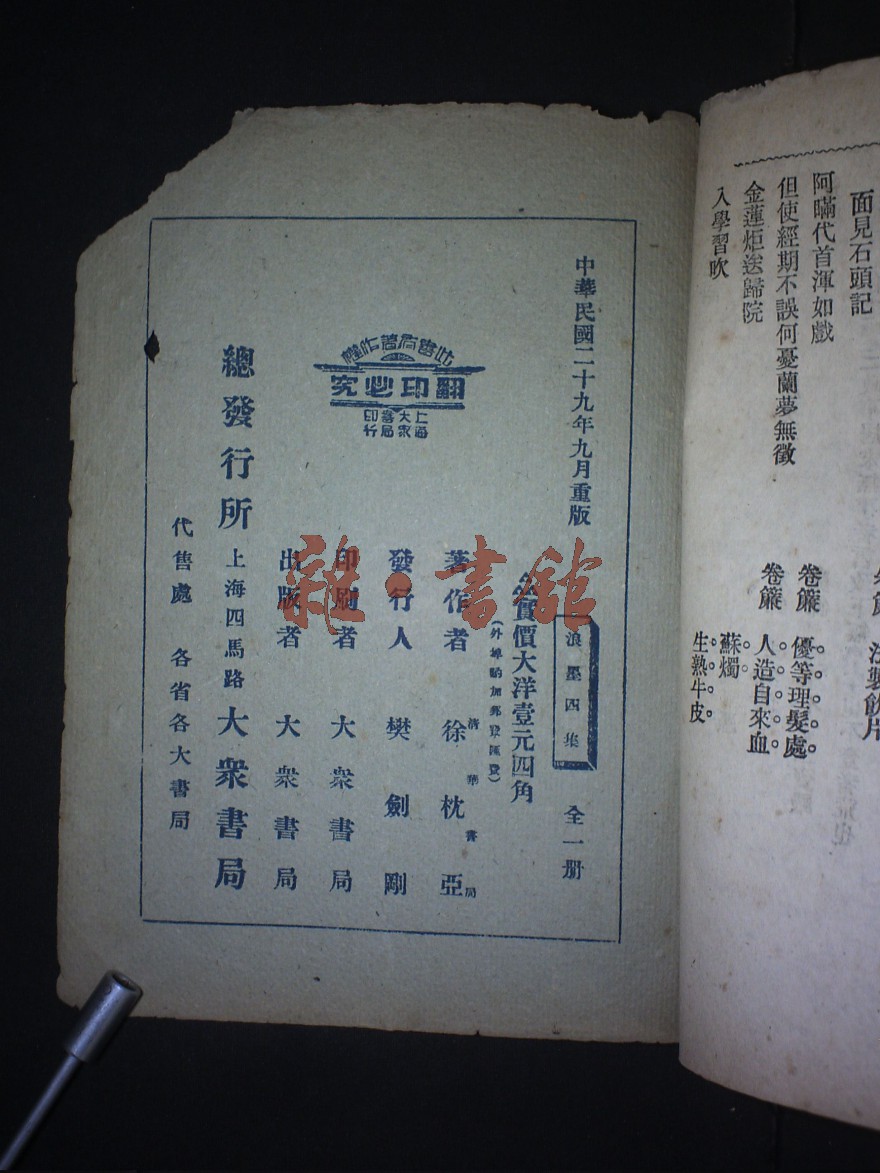 面見石頭記
阿瞞代首渾如戲
但使經期不誤何憂蘭夢無徵
金蓮炬送歸院
入學習吹
卷簾 優等理髮處。
卷簾 人造自來血。
蘇燭。
生熟牛皮。
中華民國二十九年九月重版
浪墨四集 全一册
實價大洋壹元四角
(外埠酌加郵費匯費)
著作者 徐枕亞
清華書局
發行人 樊劍剛
印刷者 大衆書局
出版者 大衆書局
此書有著作權
翻印必究
上海大衆書局印行
總發行所 上海四馬路 大衆書局
代售處 各省各大書局
雜·書館